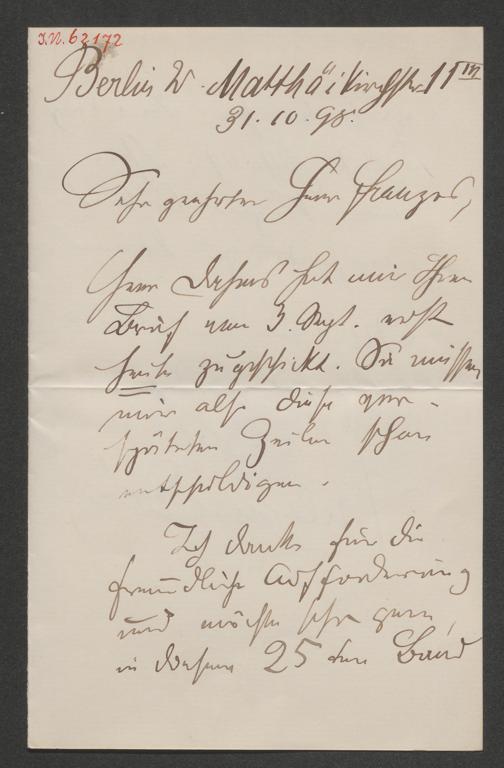 I.N. 62.172
Berlin W. Matthäikirchstr. 11 III
31.10.98.
Sehr geehrter Herr Franzos,
Herr Dahms hat mir Ihren
Brief vom 3. Sept. erst
heute zugeschickt. Sie müssen
mir also diese ver-
späteten Zeilen schon
entschuldigen.
Ich danke für die
freundliche Aufforderung
und möchte sehr gern,
in diesem 25 ten Band